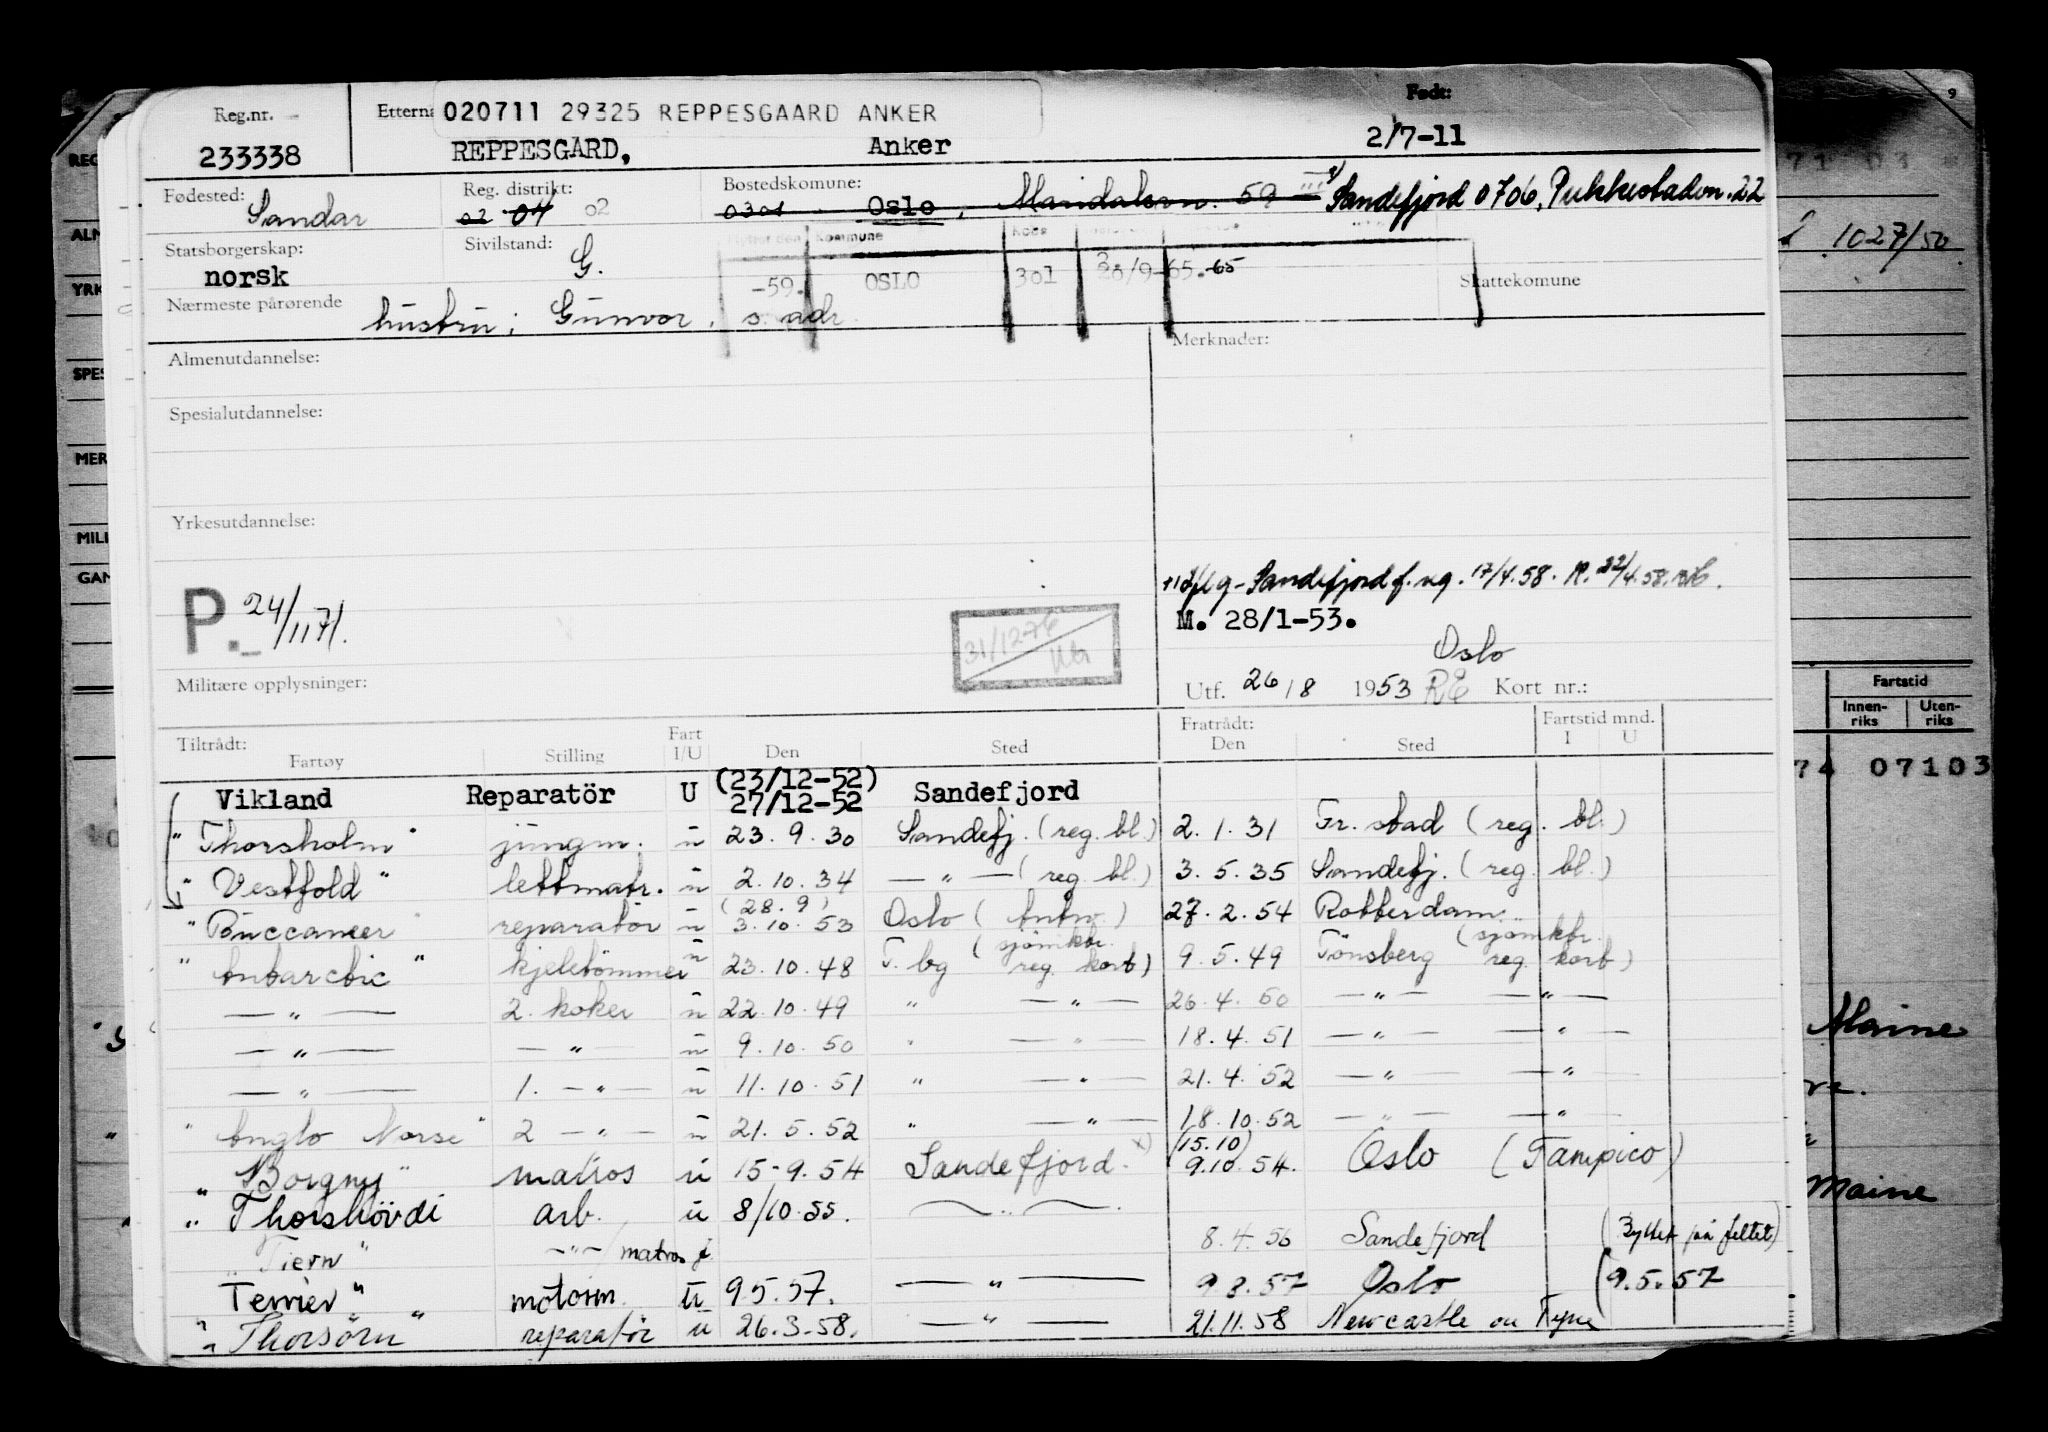 Reg.nr. Etterna 020711 29325 REPPESGAARD ANKER Født:
233338 REPPESGARD, Anker 2/7-11
Fødested: Reg. distrikt: Bostedskomune:
Sandar 02 04 02 0301 Oslo, 59 Sandefjord 0706, Pukkestadvn. 22
Statsborgerskap: Sivilstand: Kommune
norsk G. -59. OSLO 301 65 Skattekomune
Nærmeste pårørende hustru: Gunvor, s. adr.
Almenutdannelse: Merknader:
Spesialutdannelse:
Yrkesutdannelse:
Sandefjord 17/4.58. 22/4.58.
P. 24/1171.
31/12-76
M. 28/1-53.
Oslo
Militære opplysninger: Utf. 26/8 1953 RE Kort nr.:
Tiltrådt: Fart Fratrådt: Fartstid mnd.
Fartøy Stilling I/U Den Sted Den Sted I U
Vikland Reparatör U (23/12-52) 27/12-52 Sandefjord
"Thorsholm" jungm. u 23.9.30 Sandefj. (reg. bl.) 2.1.31 Fr.stad (reg. bl.)
"Vestfold" lettmatr. u 2.10.34 — " — (reg. bl.) 3.5.35 Sandefj. (reg. bl.)
"Buccaneer" reparatör u (28.9) 3.10.53 Oslo (Antw.) 27.2.54 Rotterdam
"Antarctic" kjeletömmer u 23.10.48 T.bg (sjömktr. reg. kort) 9.5.49 Tönsberg (sjömktr. reg. kort)
— " — 2. koker u 22.10.49 " — " — 26.4.50 — " — — " —
— " — — " — u 9.10.50 " — " — 18.4.51 — " — — " —
— " — 1. — " — u 11.10.51 " — " — 21.4.52 — " — — " —
"Anglo Norse" 2 — " — u 21.5.52 " — " — 18.10.52 — " — — " —
"Borgny" matros u 15-9.54 Sandefjord. x) (15.10) 9.10.54. Oslo (Tampico)
"Thorshövdi arb. u 8/10.55. — " —
"Tiern" — " — / matros 8.4.56 Sandefjord (Byttet på feltet)
Terrier" motorm. u 9.5.57. — " — 9.8.57 Oslo (9.5.57
"Thorsörn" reparatör u 26.3.58. — " — 21.11.58 Newcastle on Tyne
REG
ALM
YRK
SPES
MER
MILI
GAN
9
1027/50
Fartstid
Innen-riks Uten-riks
74 07103
Maine
Maine